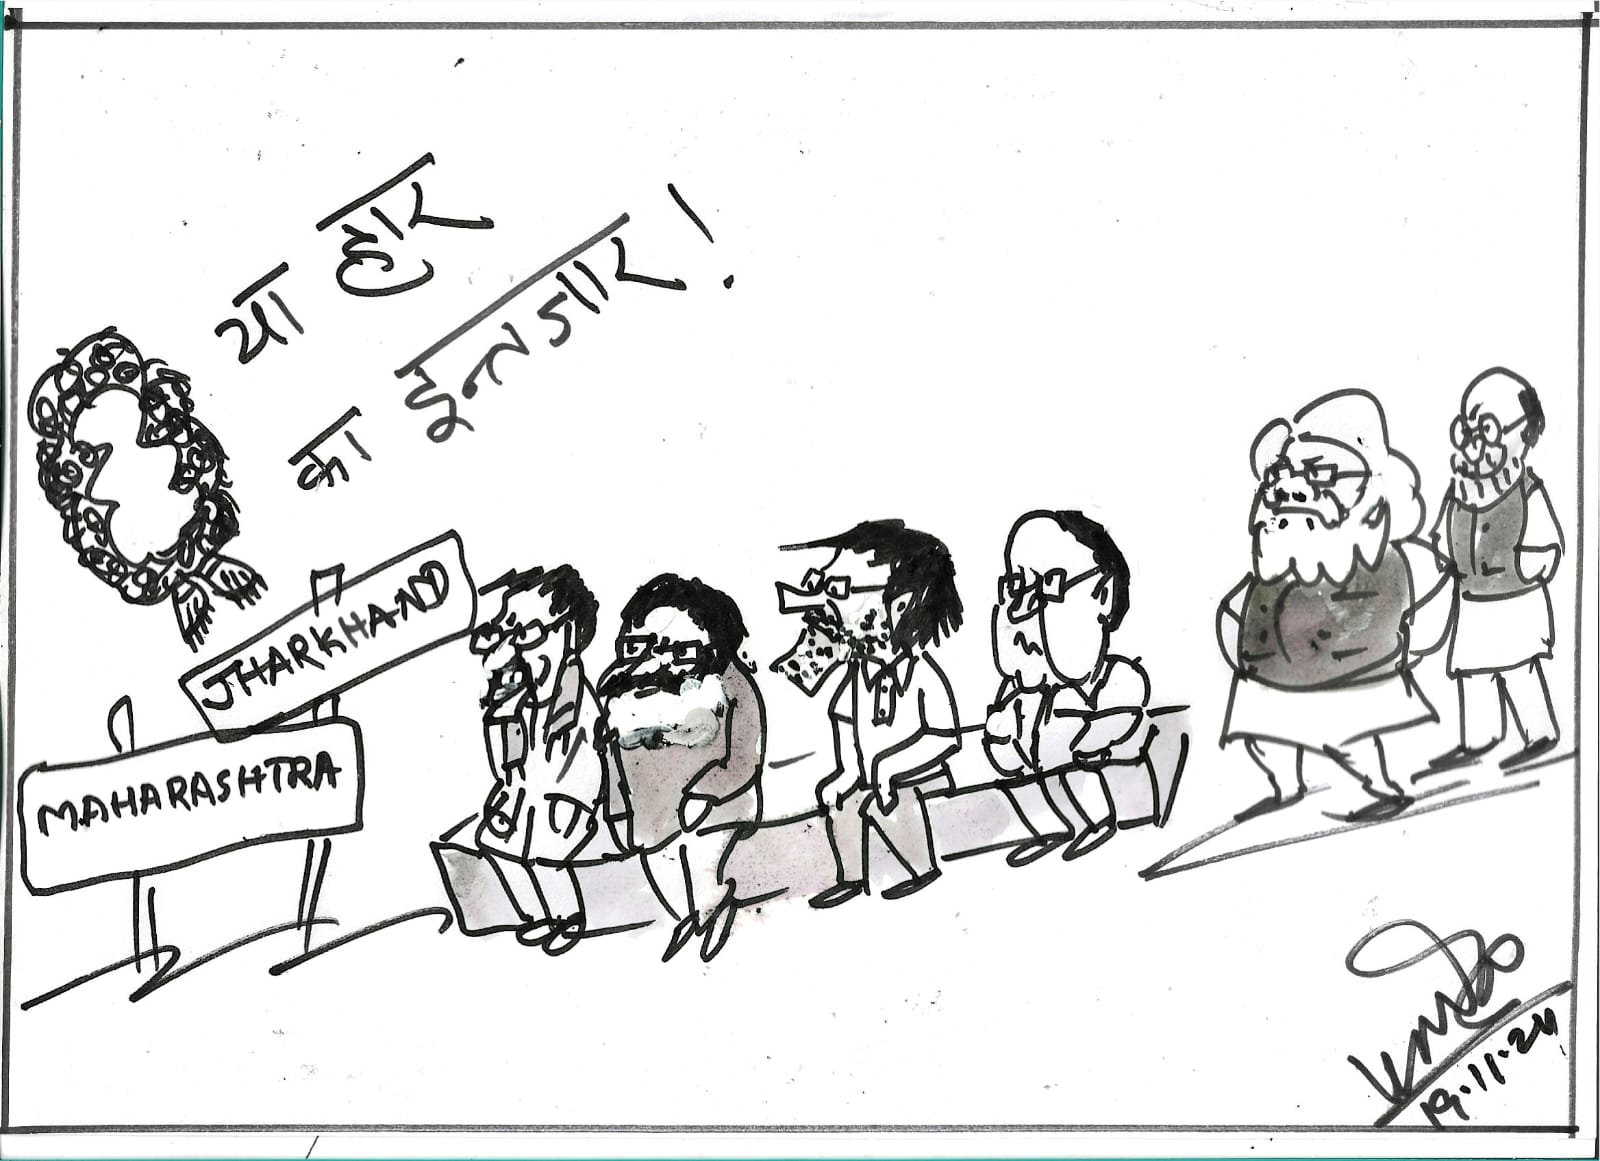 या हार
का इन्तजार!
JHARKHAND
MAHARASHTRA
19.11.24